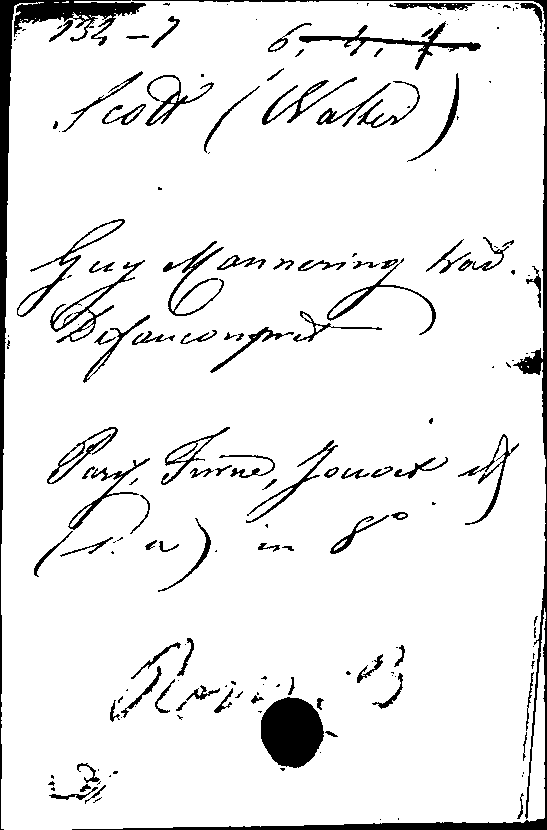 132-7 6, 4, 7
Scott (Walter)
Guy Mannering trad.
Defauconpret
Paris, Furne,
(s. a) in 8º